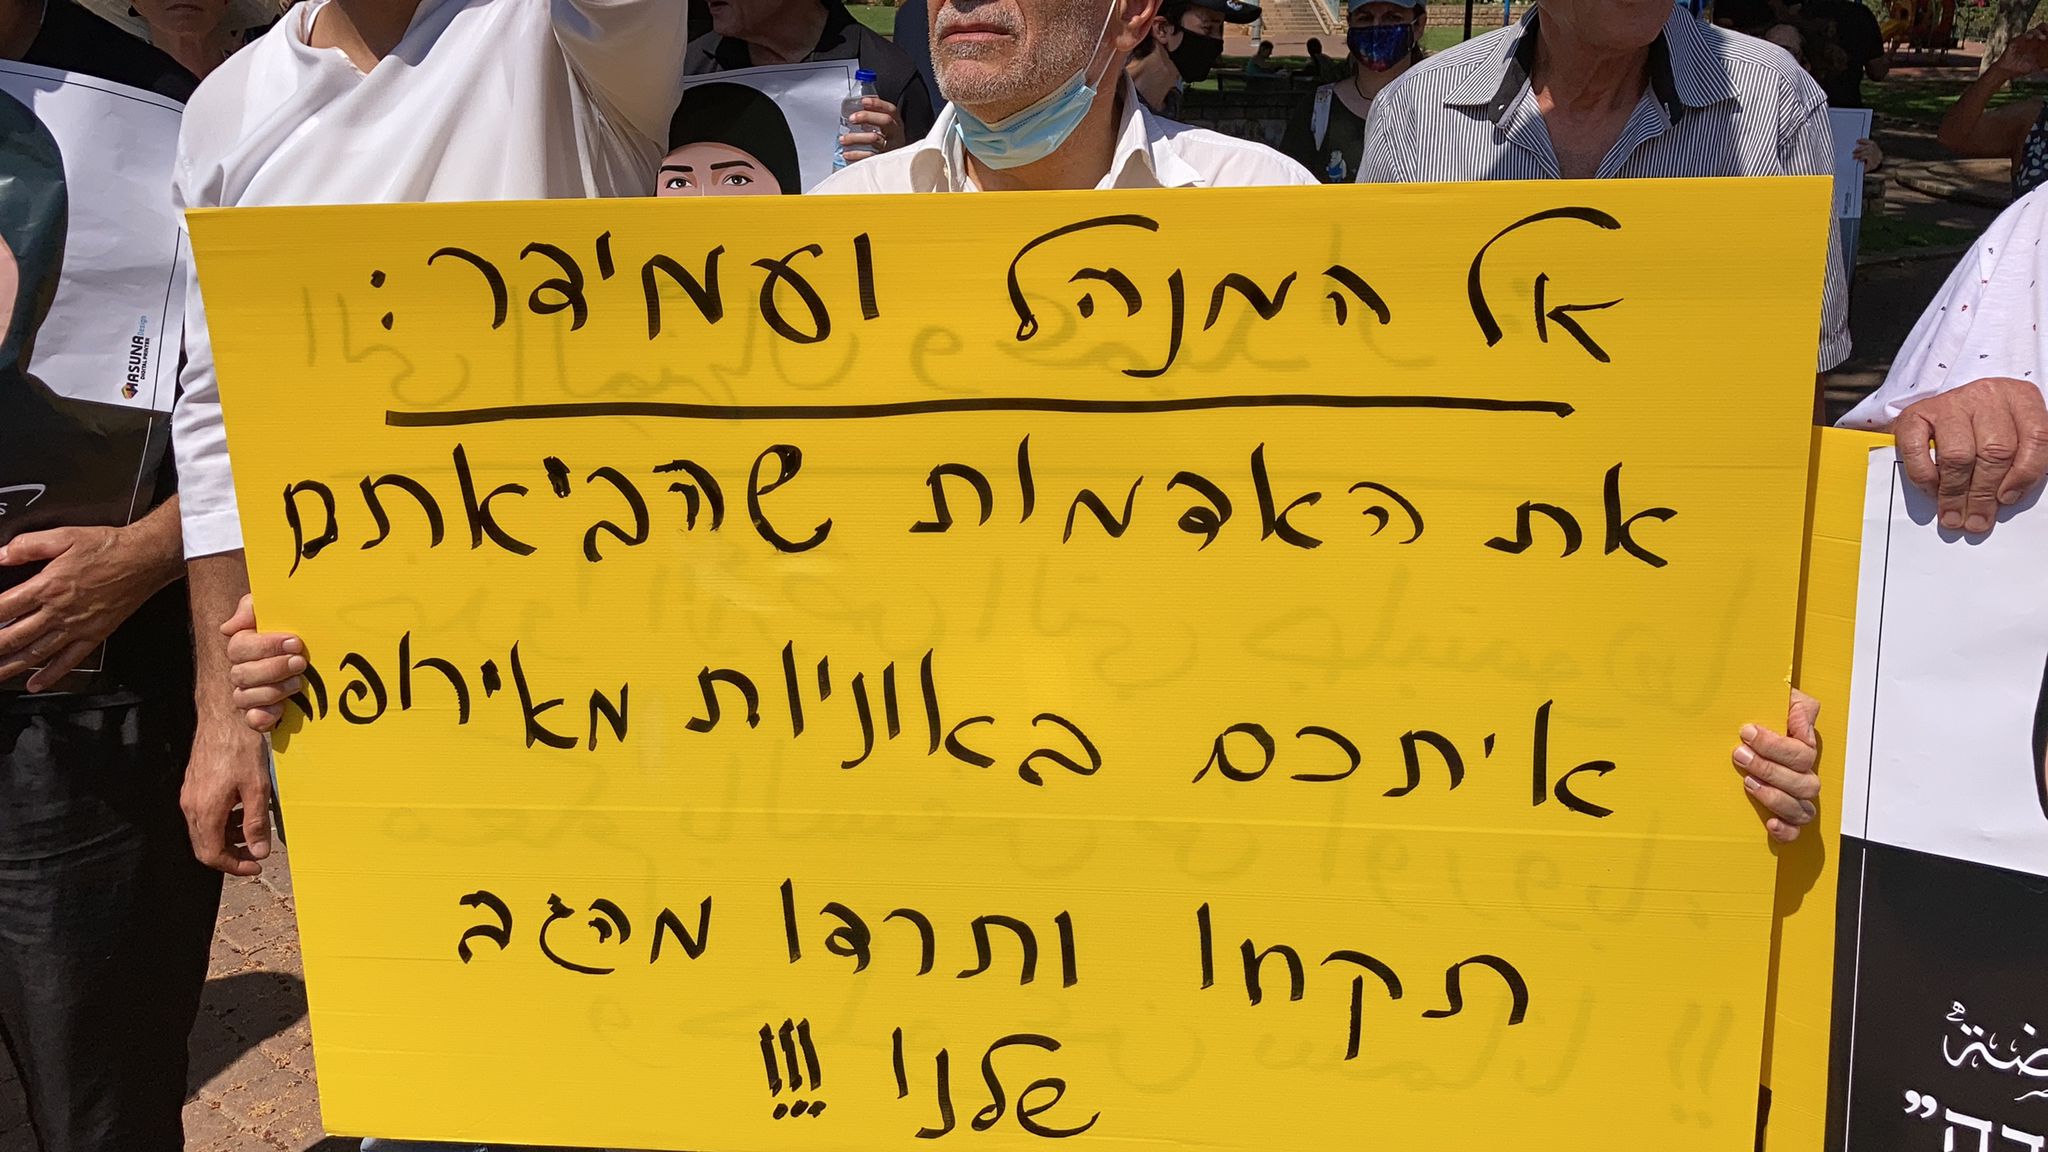 אל המנהל ועמידר:
את האדמות שהביאתם
איתכם באוניות מאירופה
תקחו ותרדו מהגב
שלנו !!!
HASUNA Design
DIGITAL PRINTER